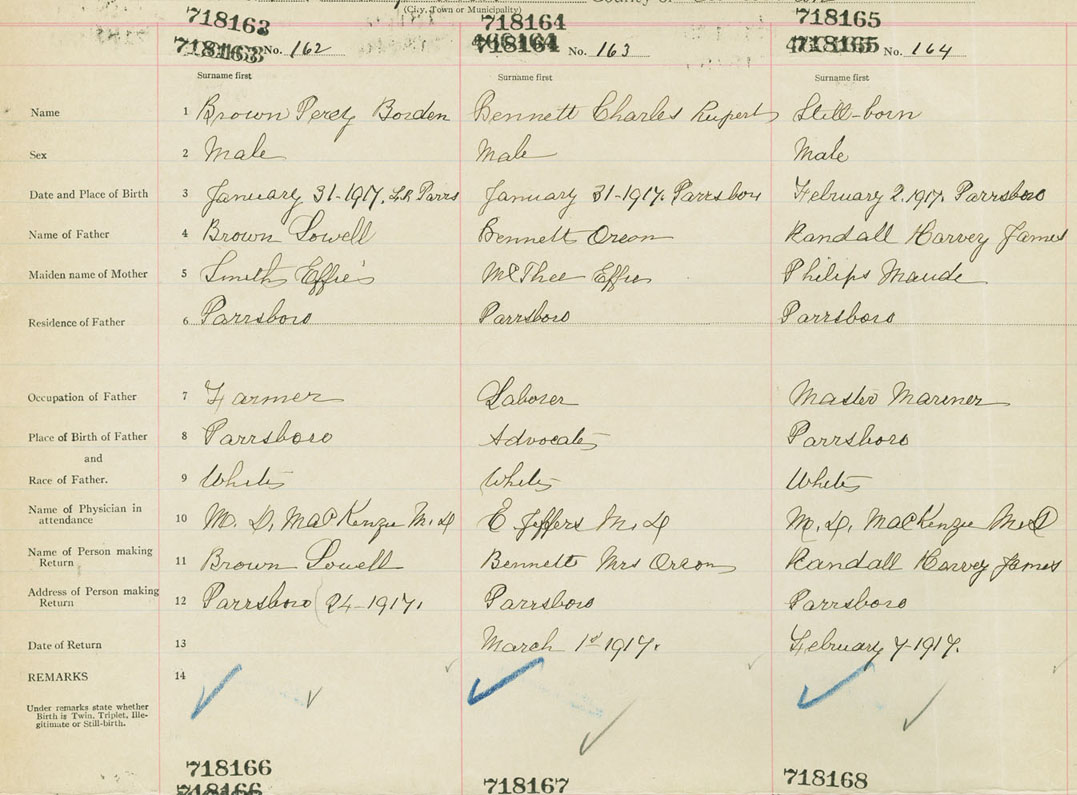 (City, Town or Municipality) County of
718163 718164 718165
718163 No. 162 718164 No. 163 718165 No. 164
Surname first Surname first Surname first
Name 1 Brown Percy Borden Bennett Charles Rupert Still-born
Sex 2 Male Male Male
Date and Place of Birth 3 January 31-1917. Parrs January 31-1917. Parrsboro February 2. 1917. Parrsboro
Name of Father 4 Brown Lowell Bennett Orson Randall Harvey James
Maiden name of Mother 5 Smith Effie Effie Philips Maude
Residence of Father 6 Parrsboro Parrsboro Parrsboro
Occupation of Father 7 Farmer Laborer Master Mariner
Place of Birth of Father 8 Parrsboro Advocate Parrsboro
and
Race of Father. 9 White White White
Name of Physician in
attendance 10 M. D. MacKenzie M.D E Jeffers M.D M. D. MacKenzie M.D
Name of Person making
Return 11 Brown Lowell Bennett Mrs Orson Randall Harvey James
Address of Person making
Return 12 Parrsboro 24-1917. Parrsboro Parrsboro
Date of Return 13 March 1st 1917. February 7-1917.
REMARKS 14
Under remarks state whether
Birth is Twin, Triplet, Ille-
gitimate or Still-birth.
718166 718167 718168
718166